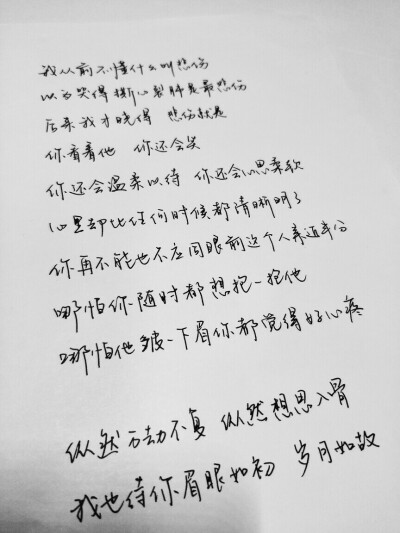 我从前不懂什么叫悲伤
以为哭得撕心裂肺是最悲伤
后来我才晓得 悲伤就是
你看着他 你还会笑
你还会温柔以待 你还会心思柔软
心里却比任何时候都清晰明了
你再不能也不应同眼前这个人靠近半分
哪怕你随时都想抱一抱他
哪怕他皱一下眉你都觉得好心疼
纵然万劫不复 纵然相思入骨
我也待你眉眼如初 岁月如故